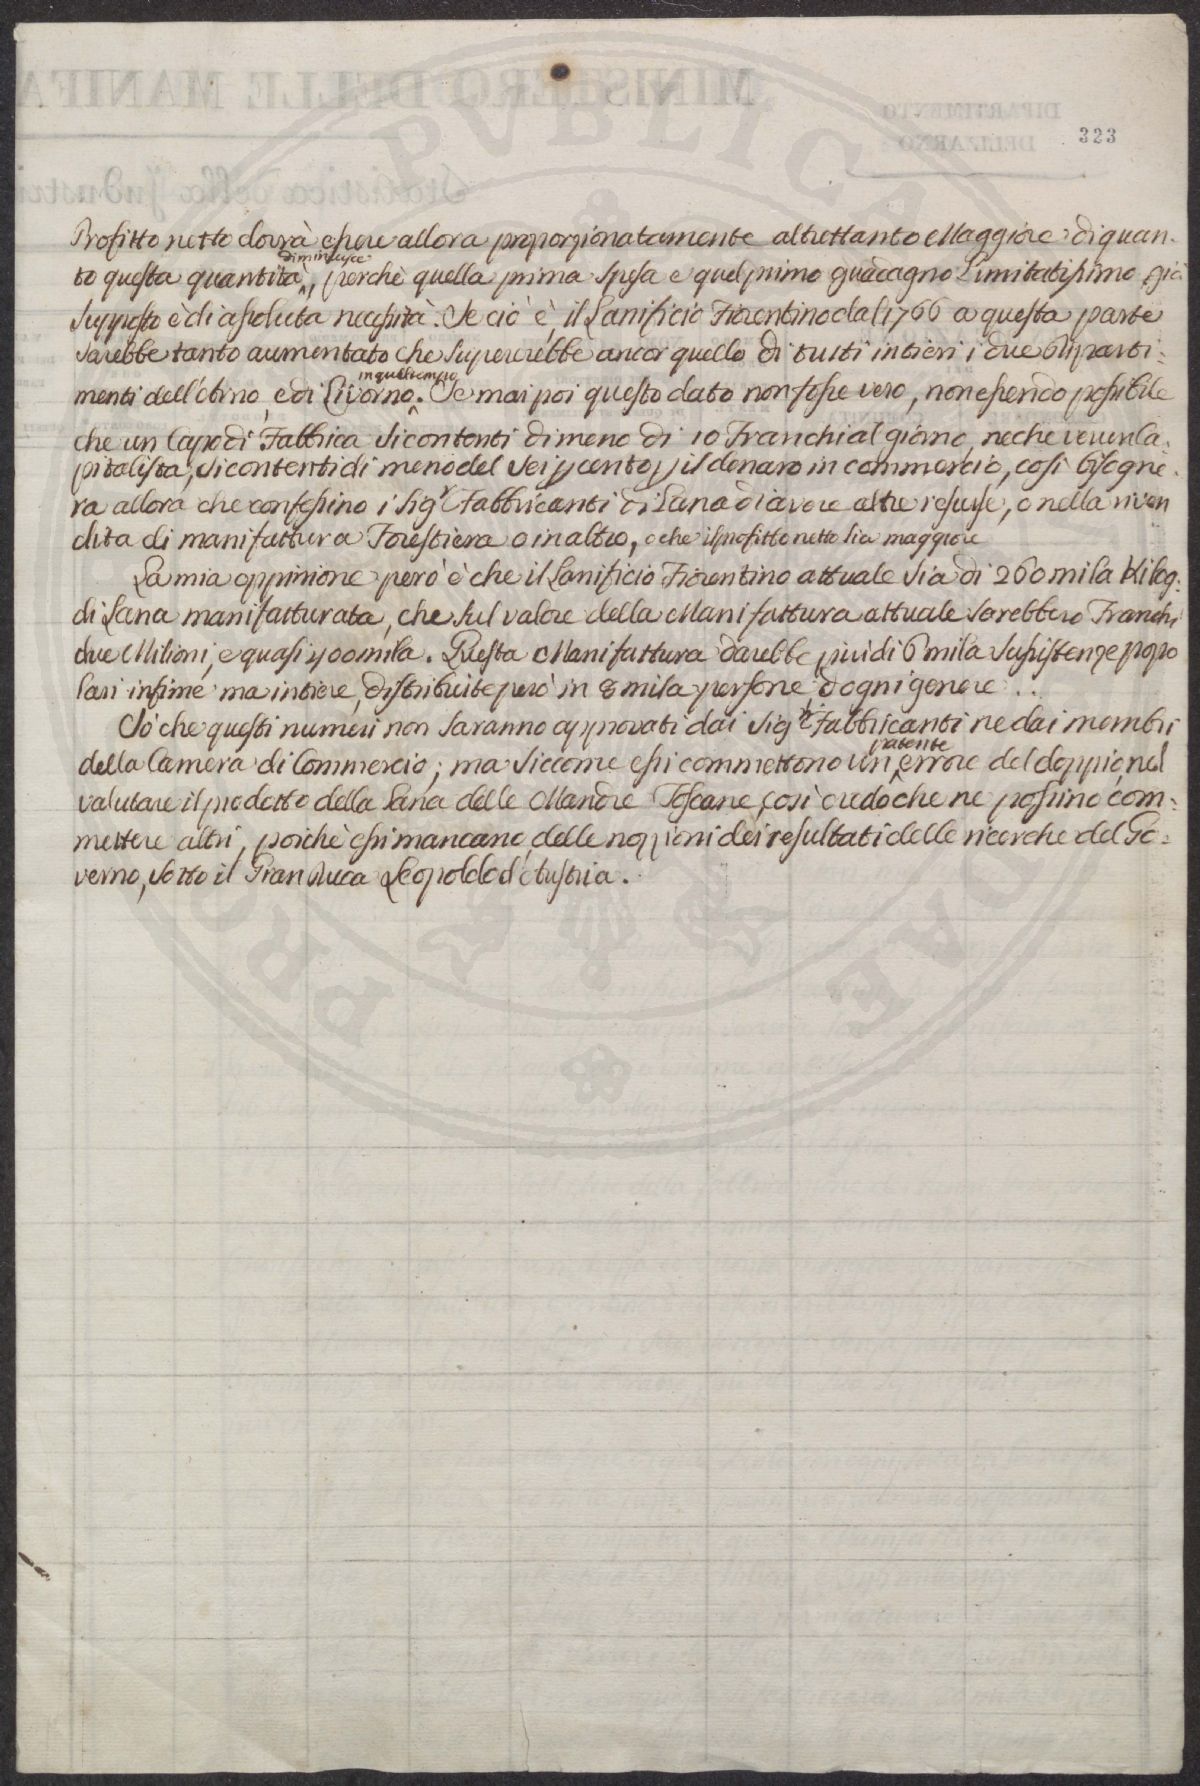 323
Profitto netto dovrà essere allora proporzionatamente altrettanto Maggiore di quan-
to questa quantità diminuisce, perchè quella prima spesa e quel primo guadagno Limitatissimo già
supposto è di assoluta necessità. Se ciò è, il Lanificio Fiorentino dal 1766 a questa parte
sarebbe tanto aumentato che supererebbe ancor quello di tutti intieri i due Diparti-
menti dell'Arno, e di Livorno in quel tempo. Se mai poi questo dato non fosse vero, non essendo possibile
che un Capo di Fabbrica si contenti di meno di 10 Franchi al giorno, ne che verun Ca-
pitalista, si contenti di meno del sei p cento p il denaro in commercio, così bisogne-
rà allora che confessino i Sigri Fabbricanti di Lana di avere altre risorse, o nella riven
dita di manifattura Forestiera o in altro, o che il profitto netto sia maggiore
La mia oppinione però è che il Lanificio Fiorentino attuale sia di 260 mila Kilog.
di Lana manifatturata, che sul valore della Manifattura attuale sarebbero Franchi
due Milioni, e quasi 400 mila. Questa Manifattura darebbe più di 6 mila sussistenze popo
lari infime ma intiere, distribuite però in 8 mila persone d'ogni genere ..
Sò che questi numeri non saranno approvati dai Sigri Fabbricanti ne dai membri
della Camera di Commercio; ma siccome essi commettono un patente errore del doppio, nel
valutare il prodotto della Lana delle Mandre Toscane, così credo che ne possino com-
mettere altri, poichè essi mancano delle nozzioni dei resultati delle ricerche del Go-
verno, sotto il Gran Duca Leopoldo d'Austria.
MINISTERO DELLE MANIFA
DIPARTIMENTO
DELL'ARNO
Statistica della Industri
PVBLICAE
PRO